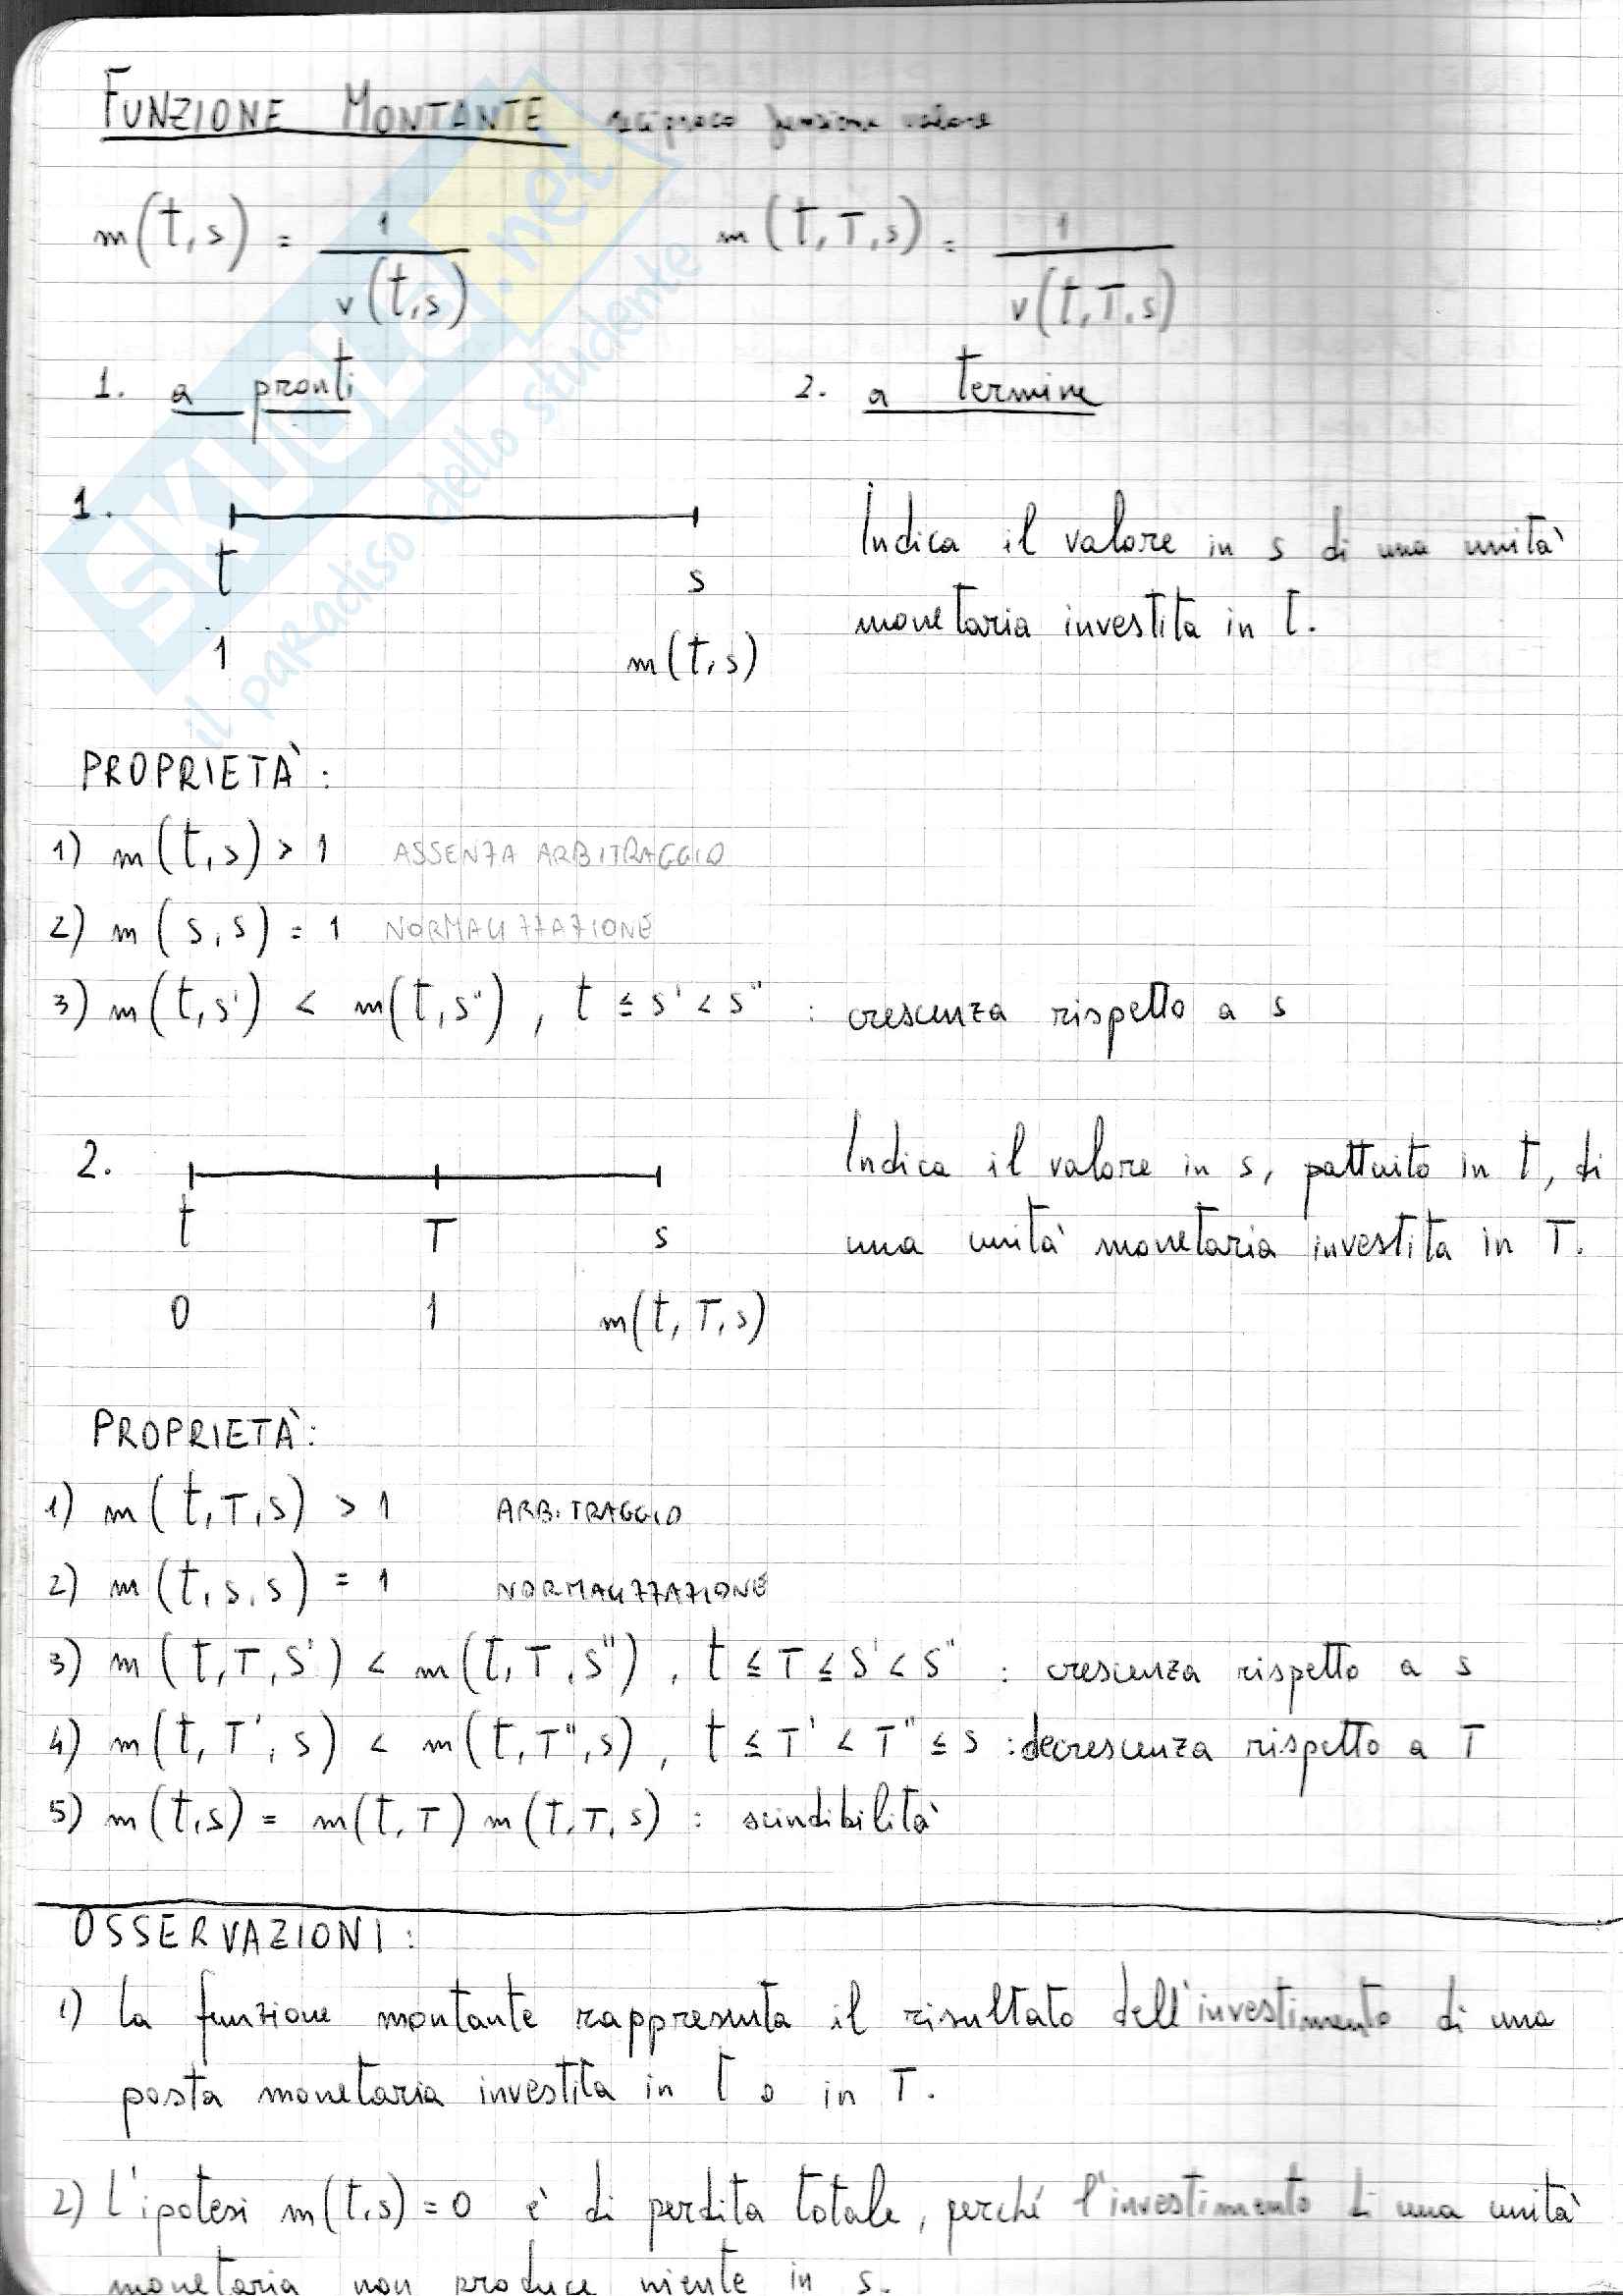 FUNZIONE MONTANTE reciproco funzione valore
m(t,s) = 1 / v(t,s) m(t,T,s) = 1 / v(t,T,s)
1. a pronti 2. a termine
1. Indica il valore in s di una unità
t s
monetaria investita in t.
1 m(t,s)
PROPRIETÀ:
1) m(t,s) > 1 ASSENZA ARBITRAGGIO
2) m(s,s) = 1 NORMALIZZAZIONE
3) m(t,s') < m(t,s"), t ≤ s' < s" : crescenza rispetto a s
2. Indica il valore in s, pattuito in t, di
t T s una unità monetaria investita in T.
0 1 m(t,T,s)
PROPRIETÀ:
1) m(t,T,s) > 1 ARBITRAGGIO
2) m(t,s,s) = 1 NORMALIZZAZIONE
3) m(t,T,s') < m(t,T,s"), t ≤ T ≤ s' < s" : crescenza rispetto a s
4) m(t,T',s) < m(t,T",s), t ≤ T' < T" ≤ s : decrescenza rispetto a T
5) m(t,s) = m(t,T) m(t,T,s) : scindibilità
OSSERVAZIONI:
1) La funzione montante rappresenta il risultato dell'investimento di una
posta monetaria investita in t o in T.
2) L'ipotesi m(t,s) = 0 è di perdita totale, perché l'investimento di una unità
monetaria non produce niente in s.
SKUOLA.net
il paradiso dello studente